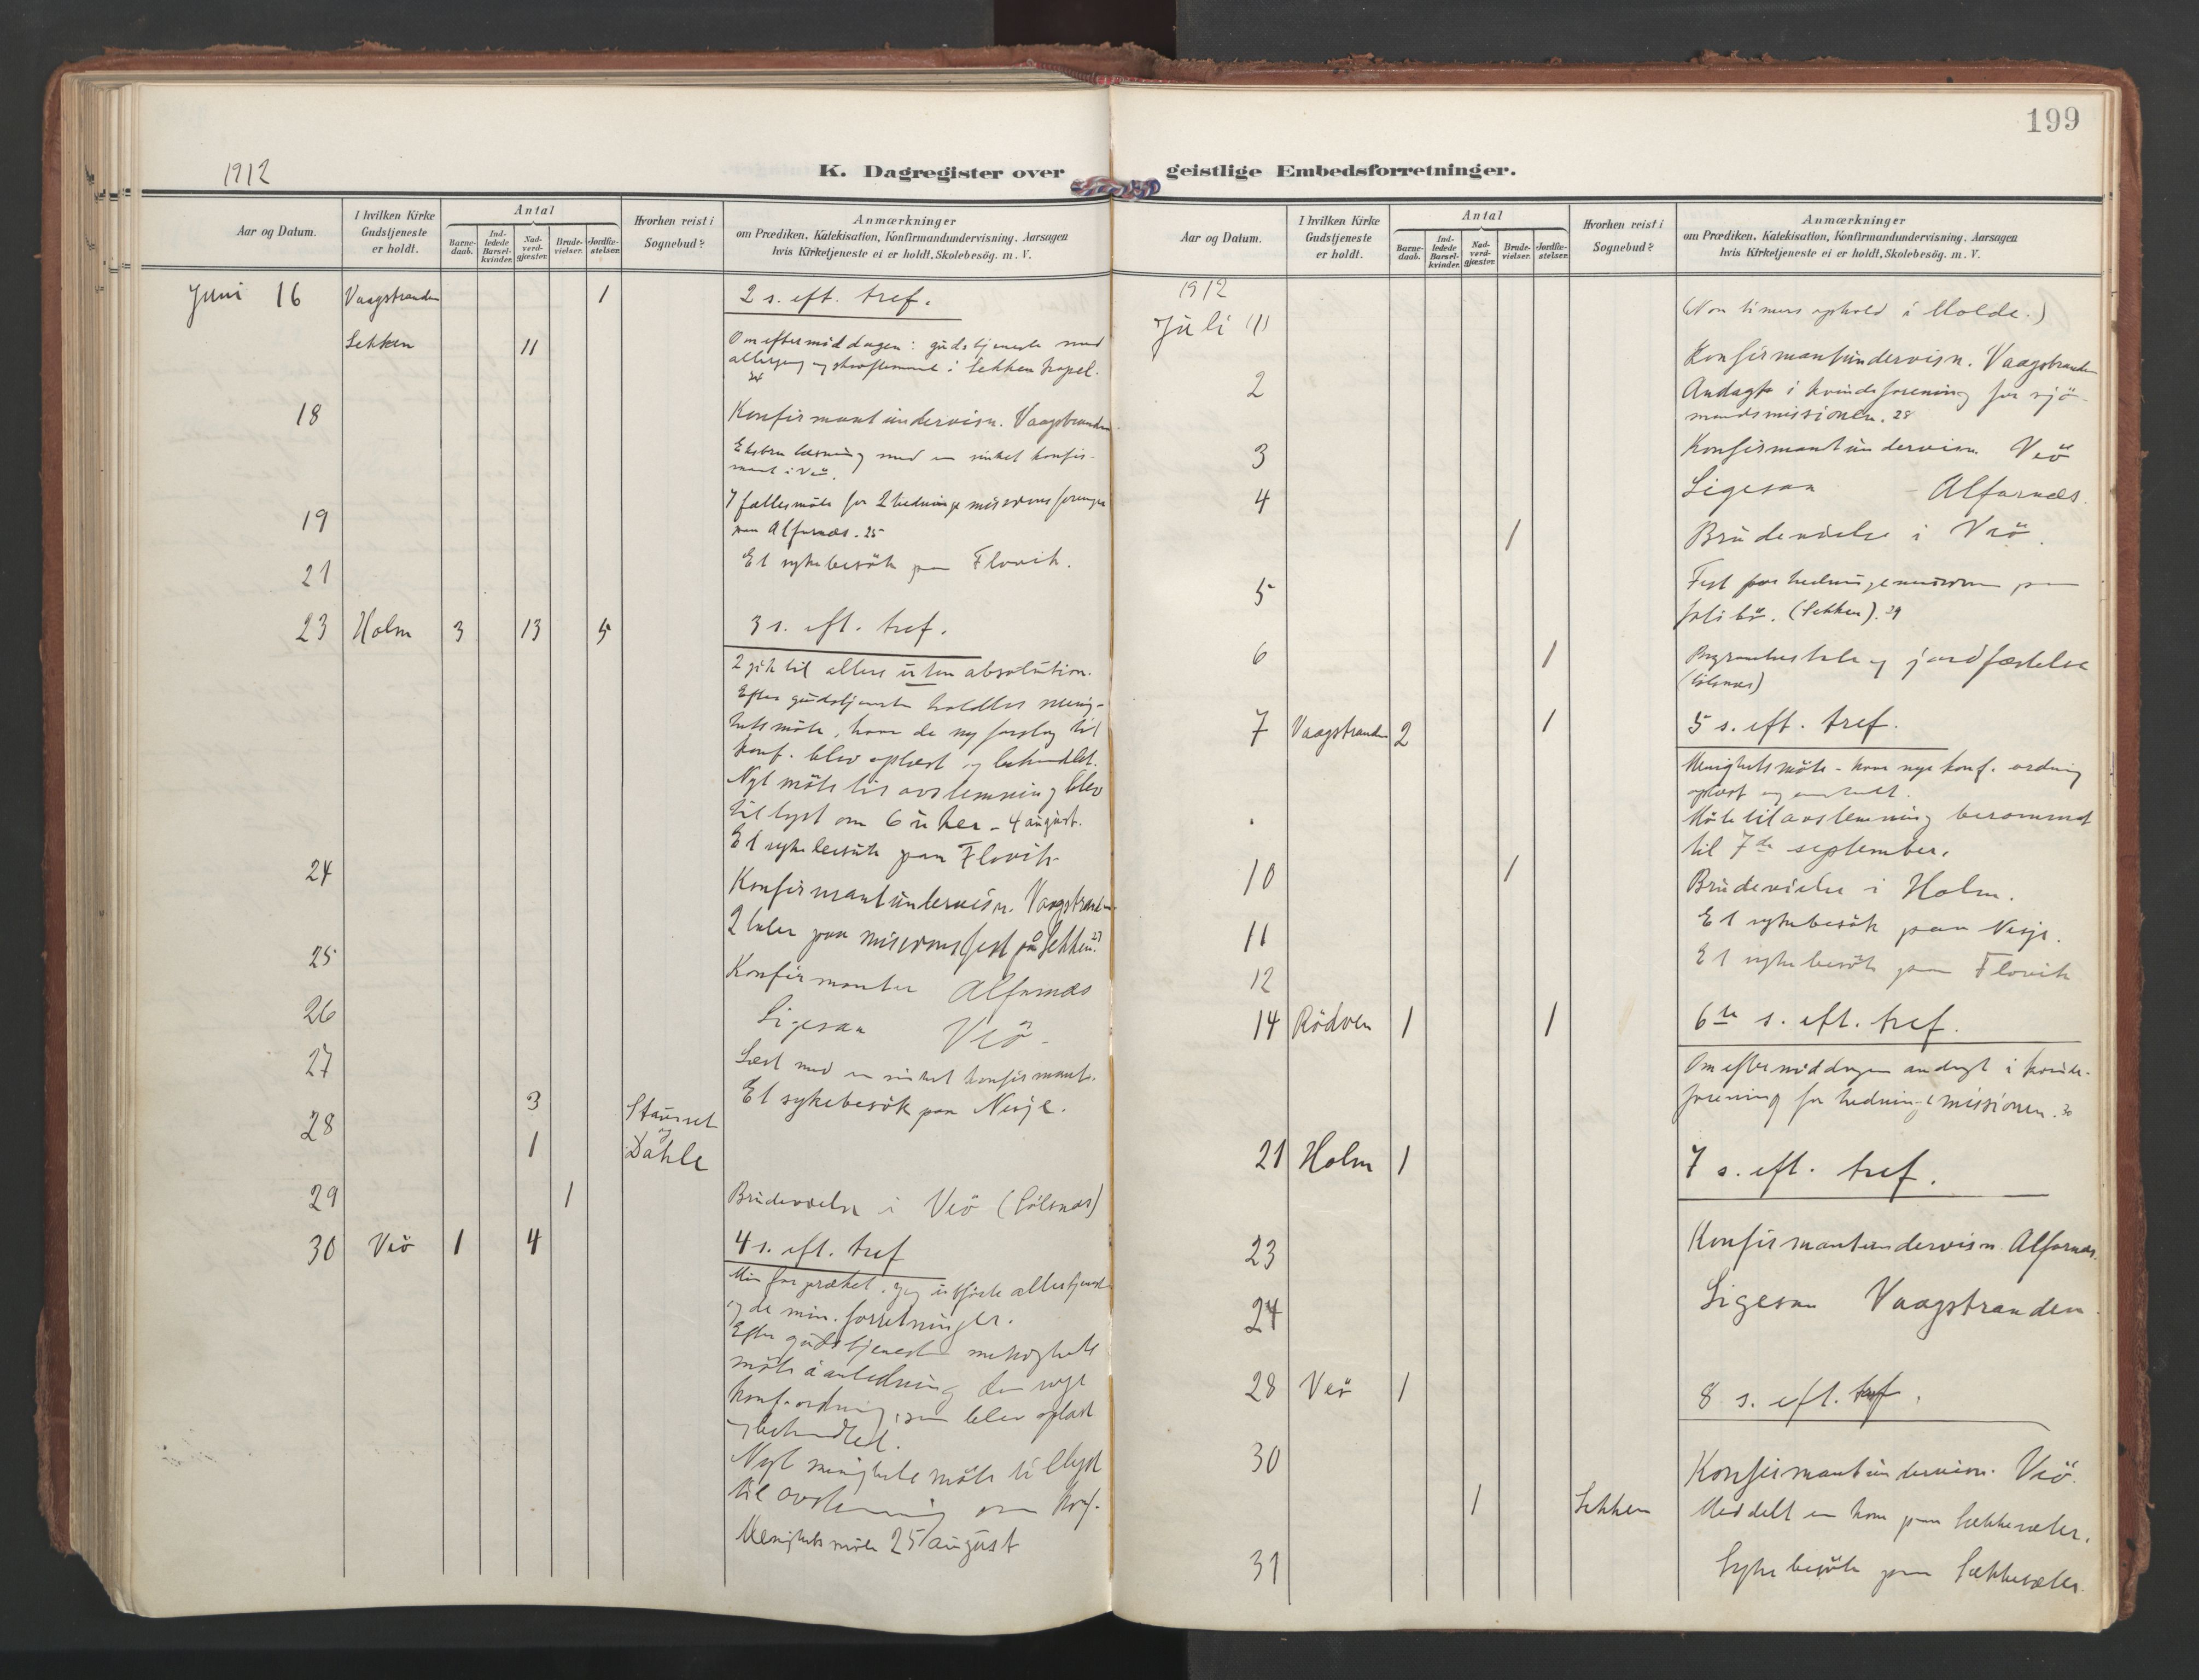 199
1912
K. Dagregister over geistlige Embedsforretninger.
Aar og Datum.
I hvilken Kirke Gudstjeneste er holdt.
Antal
Barne-daab.
Ind-ledede Barsel-kvinder.
Nad-verd-gjæster.
Brude-vielser.
Jordfæ-stelser.
Hvorhen reist i Sognebud?
Anmærkninger
om Prædiken, Katekisation, Konfirmandundervisning, Aarsagen
hvis Kirketjeneste ei er holdt, Skolebesög. m. V.
Juni 16 Vaagstranden 1 2 s. eft. tref.
Sekken 11 Om eftermiddagen: gudstjeneste med
altergang og skriftemaal i Sekken kapel.
24
18 Konfirmantundervisn. Vaagstranden
Ekstra læsning med en enkel konfir-
mant i Veö.
19 Fællesmöte for 2 hedningemissionsforeninger
paa Alfarnæs. 25
21 Et sykebesök paa Flovik.
23 Holm 3 13 5 3 s. eft. tref.
2 gik til alters uten absolution.
Efter gudstjenesten holdtes menig-
hetsmöte, hvor de ny forslag til
konf. blev oplæst og behandlet.
Nyt möte til avstemning blev
tillyst om 6 uker - 4 august.
Et sykebesök paa Flovik
24 Konfirmantundervisn. Vaagstranden
2 taler paa missionsfest på Sekken. 27
25 Konfirmanter Alfarnæs
26 Ligesaa Veö
27 Læst med en enkel konfirmant.
Et sykebesök paa Nesje.
28 3 Staurset
og
1 Dahle
29 1 Brudevielse i Veö (Sölsnæs)
30 Veö 1 4 4 s. eft. tref
Min far præket. Jeg utförte altertjenesten
og de min. forretninger.
Efter gudstjenesten menighets
möte i anledning den nye
konf. ordning, som blev oplæst
og behandlet.
Nyt menighetsmöte tillyst
til avstemning om konf.
Menighetsmöte 25 august
Aar og Datum.
I hvilken Kirke Gudstjeneste er holdt.
Antal
Barne-daab.
Ind-ledede Barsel-kvinder.
Nad-verd-gjæster.
Brude-vielser.
Jordfæ-stelser.
Hvorhen reist i Sognebud?
Anmærkninger
om Prædiken, Katekisation, Konfirmandundervisning. Aarsagen
hvis Kirketjeneste ei er holdt, Skolebesög. m. V.
1912
Juli (1) (Non timers ophold i Molde.)
2 Konfirmantundervisn. Vaagstranden
Andagt i kvindeforening for sjö-
mandsmissionen. 28
3 Konfirmantundervisn Veö
4 Ligesaa Alfarnæs.
1 Brudevielse i Veö.
5 Fest for hedningemissionen paa
(Sekken). 29
6 1 og jordfæstelse
(Sölsnæs)
7 Vaagstranden 2 1 5 s. eft. tref.
Menighetsmöte - hvor nye konf. ordning
oplæst og
Möte til avstemning berammet
til 7de september.
10 1 Brudevielse i Holm.
11 Et sykebesök paa Nesje.
12 Et sykebesök paa Flovik
14 Rödven 1 1 6te s. eft. tref.
Om eftermiddagen andagt i kvinde-
forening for hedningemissionen. 30
21 Holm 1 7 s. eft. tref.
23 Konfirmantundervisn. Alfarnæs.
24 Ligesaa Vaagstranden
28 Veö 1 8 s. eft. tref.
30 Konfirmantundervisn. Veö.
1 Sekken Meddelt en kone paa Sekkesæter.
31 Sykebesök paa Sekkesæter.